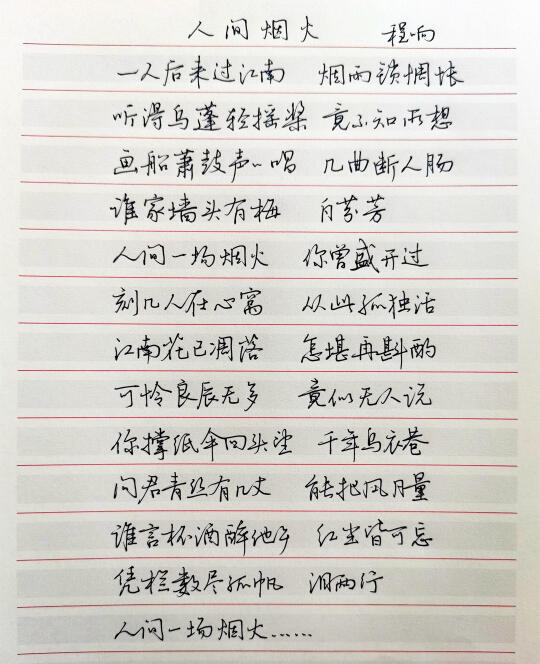 人间烟火 程响
一人后来过江南 烟雨锁惆怅
听得乌蓬轻摇桨 竟不知所想
画船萧鼓声声唱 几曲断人肠
谁家墙头有梅 自芬芳
人间一场烟火 你曾盛开过
刻几人在心窝 从此孤独活
江南花已凋落 怎堪再斟酌
可怜良辰无多 竟似无人说
你撑纸伞回头望 千年乌衣巷
问君青丝有几丈 能把风月量
谁言杯酒醉他乡 红尘皆可忘
凭栏数尽孤帆 泪两行
人间一场烟火……